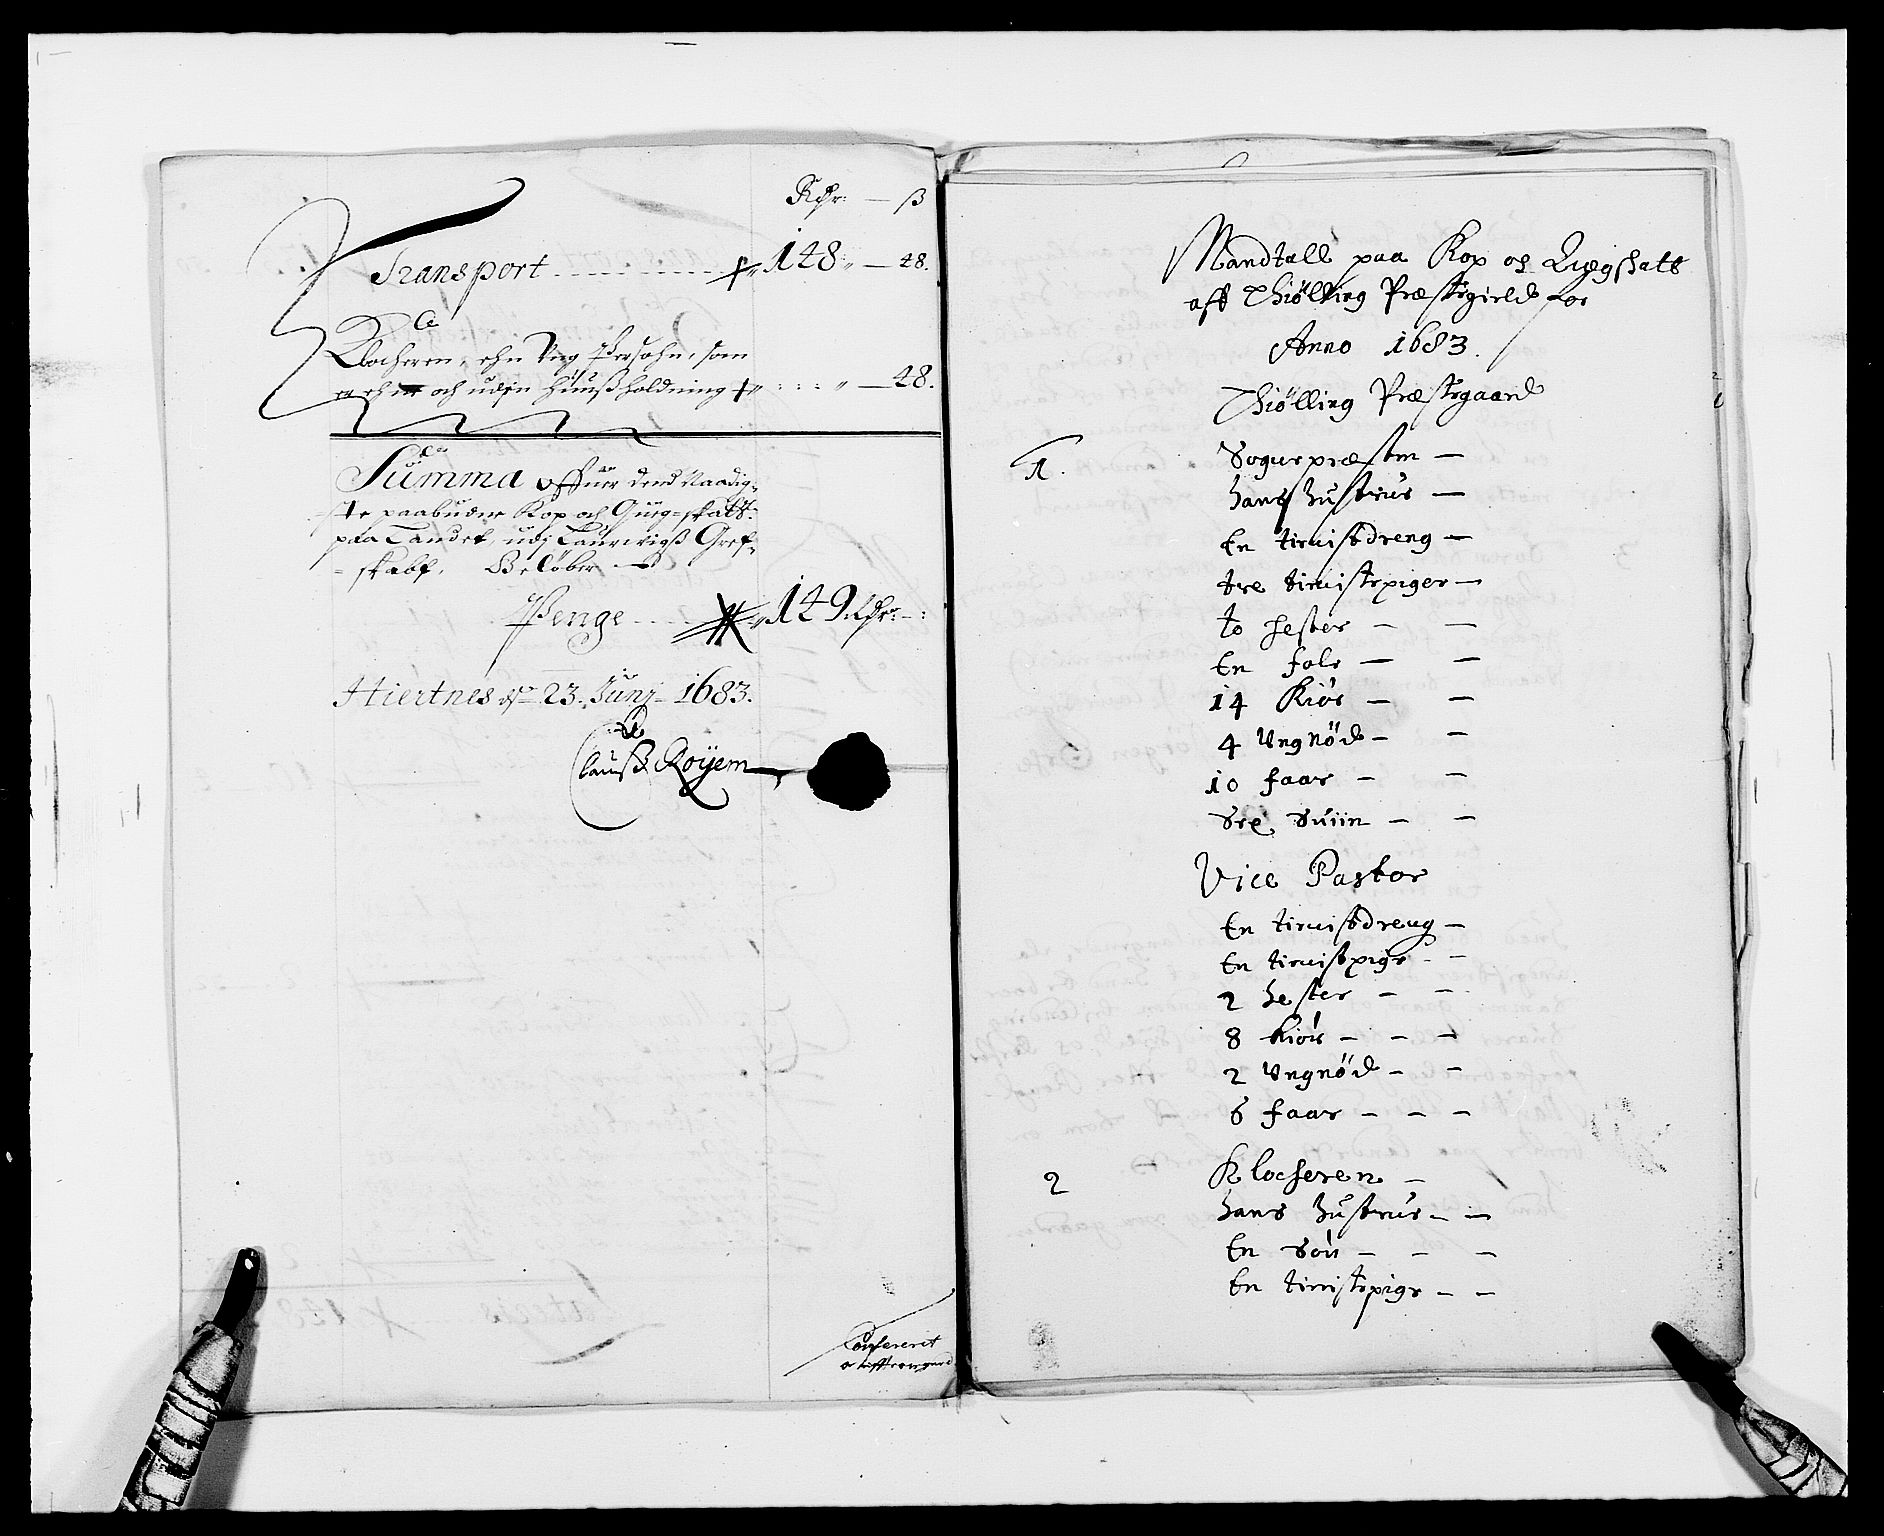 Rdr: — ß
Transport 148 — 48.
Klocheren, ehn Ung Persohn, som
er och uden Huußholdning — 48.
Summa offuer dend Naadig-
ste paabudne Kop och Queg-skatt
paa Landet udj Laurvigß Gref-
skabf, Beløber
Penge 149 Rdr:
Hiertnes dn 23. Junj 1683.
Clauß Röyem
Confereret
Mandtall paa Kop og Qvegschatt
aff Thiølling Præstegield for
Anno 1683.
Thiølling Præstegaard
1. Sognepræsten —
hans hustrue —
En tienistdreng —
tre tienistepiger —
to hester — —
En fole — —
14 Kiør — —
4 Ungnød — —
10 faar — —
Sex Suiin — —
Vice Pastor
En tienistdreng —
En tienistpige — —
2 hester — —
8 kiør — — —
2 Ungnød — —
6 faar — — —
2 Klocheren —
hans hustrue — —
En Søn — — —
En tienistepige — —